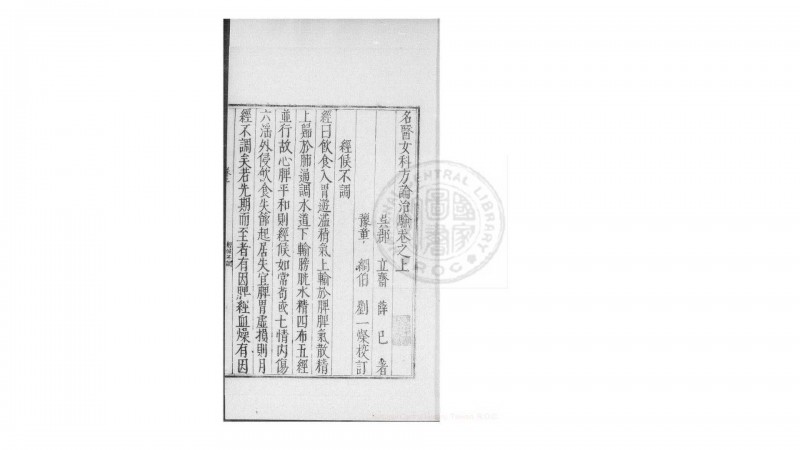 名醫女科方論治驗卷之上
吳郡 立齋 薛 己 著
豫章 絅伯 劉一燦校訂
經候不調
經曰飲食入胃遊溢精氣上輸於脾脾氣散精
上歸於肺通調水道下輸膀胱水精四布五經
並行故心脾平和則經候如常苟或七情內傷
六淫外侵飲食失節起居失宜脾胃虛損則月
經不調矣若先期而至者有因脾經血燥有因
NATIONAL CENTRAL LIBRARY
R.O.C.
國家圖書館